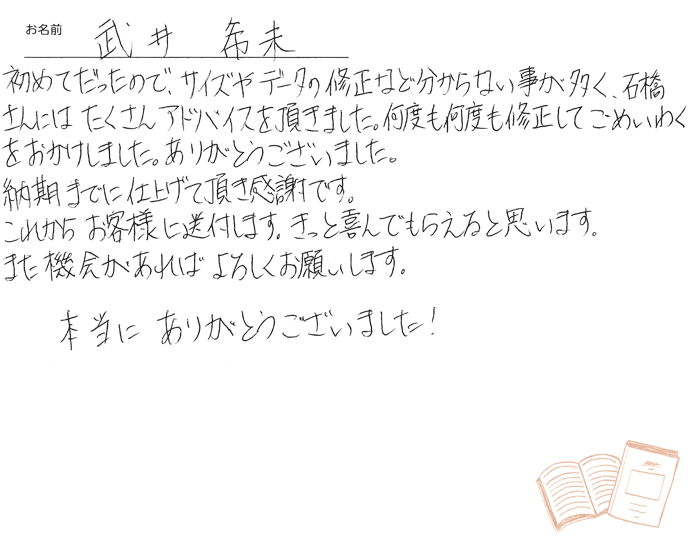 お名前 武井 希未
初めてだったので、サイズやデータの修正など分からない事が多く、石橋
さんにはたくさんアドバイスを頂きました。何度も何度も修正してごめいわく
をおかけしました。ありがとうございました。
納期までに仕上げて頂き感謝です。
これからお客様に送付します。きっと喜んでもらえると思います。
また機会があればよろしくお願いします。
本当に ありがとうございました!